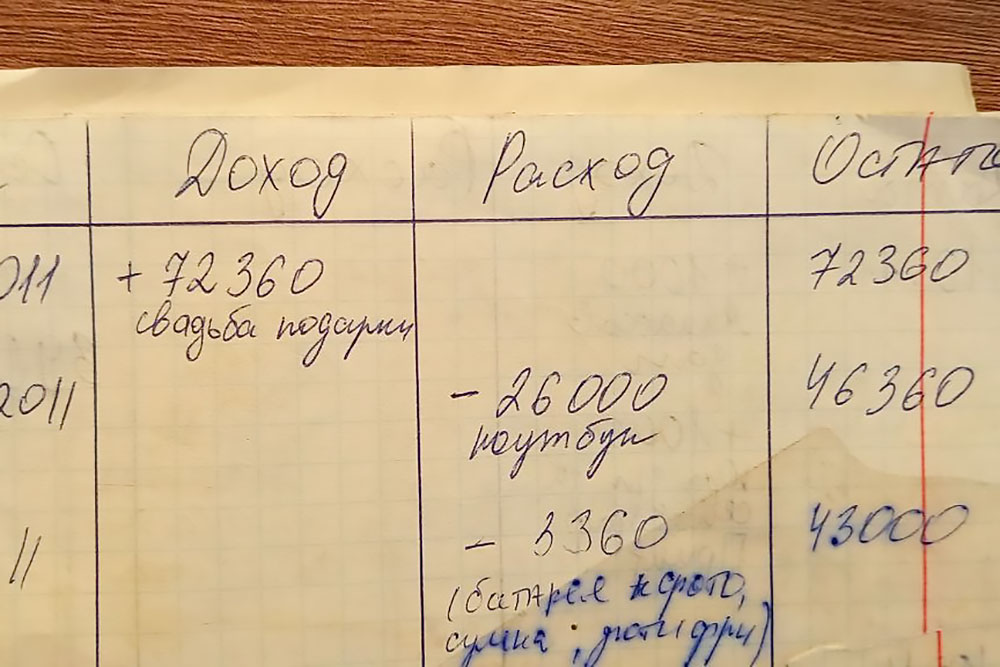 Доход Расход Остат
011 + 72360 72360
свадьба подарки
2011 - 26000 46360
ноутбук
11 - 3360 43000
(батарея к фото,
сумка,